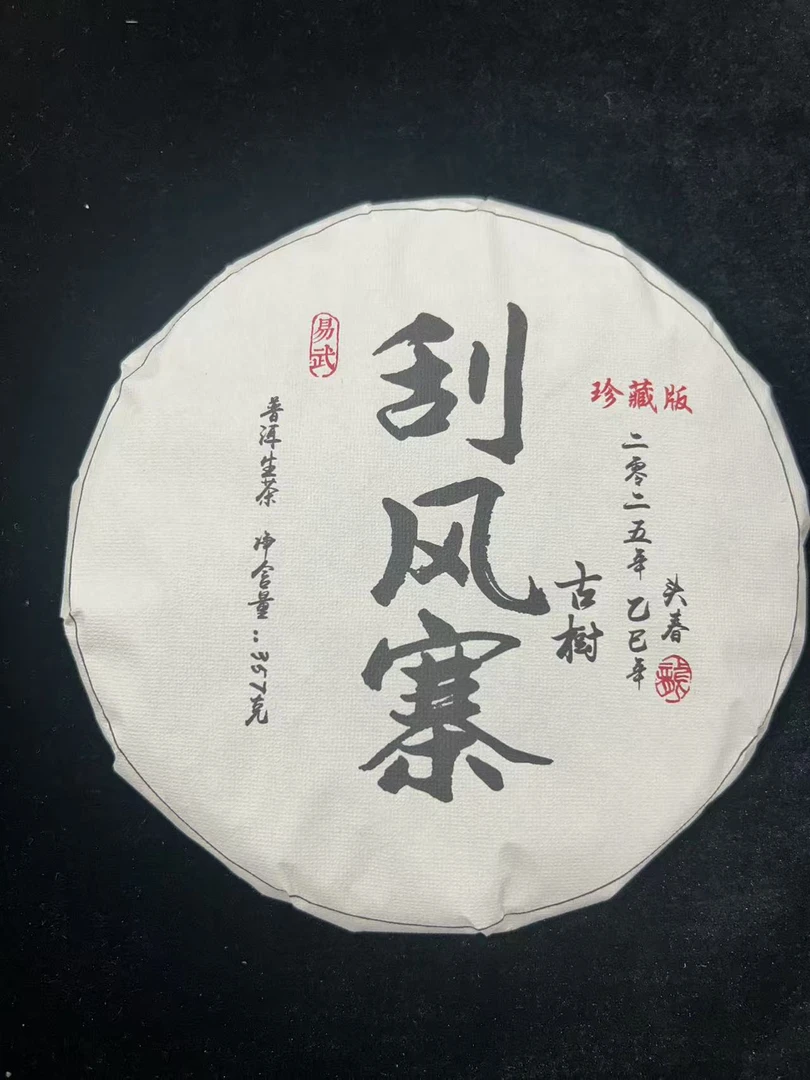 珍藏版
二零二五年 乙巳年
头春
古树
刮风寨
易武
普洱生茶 净含量：357克